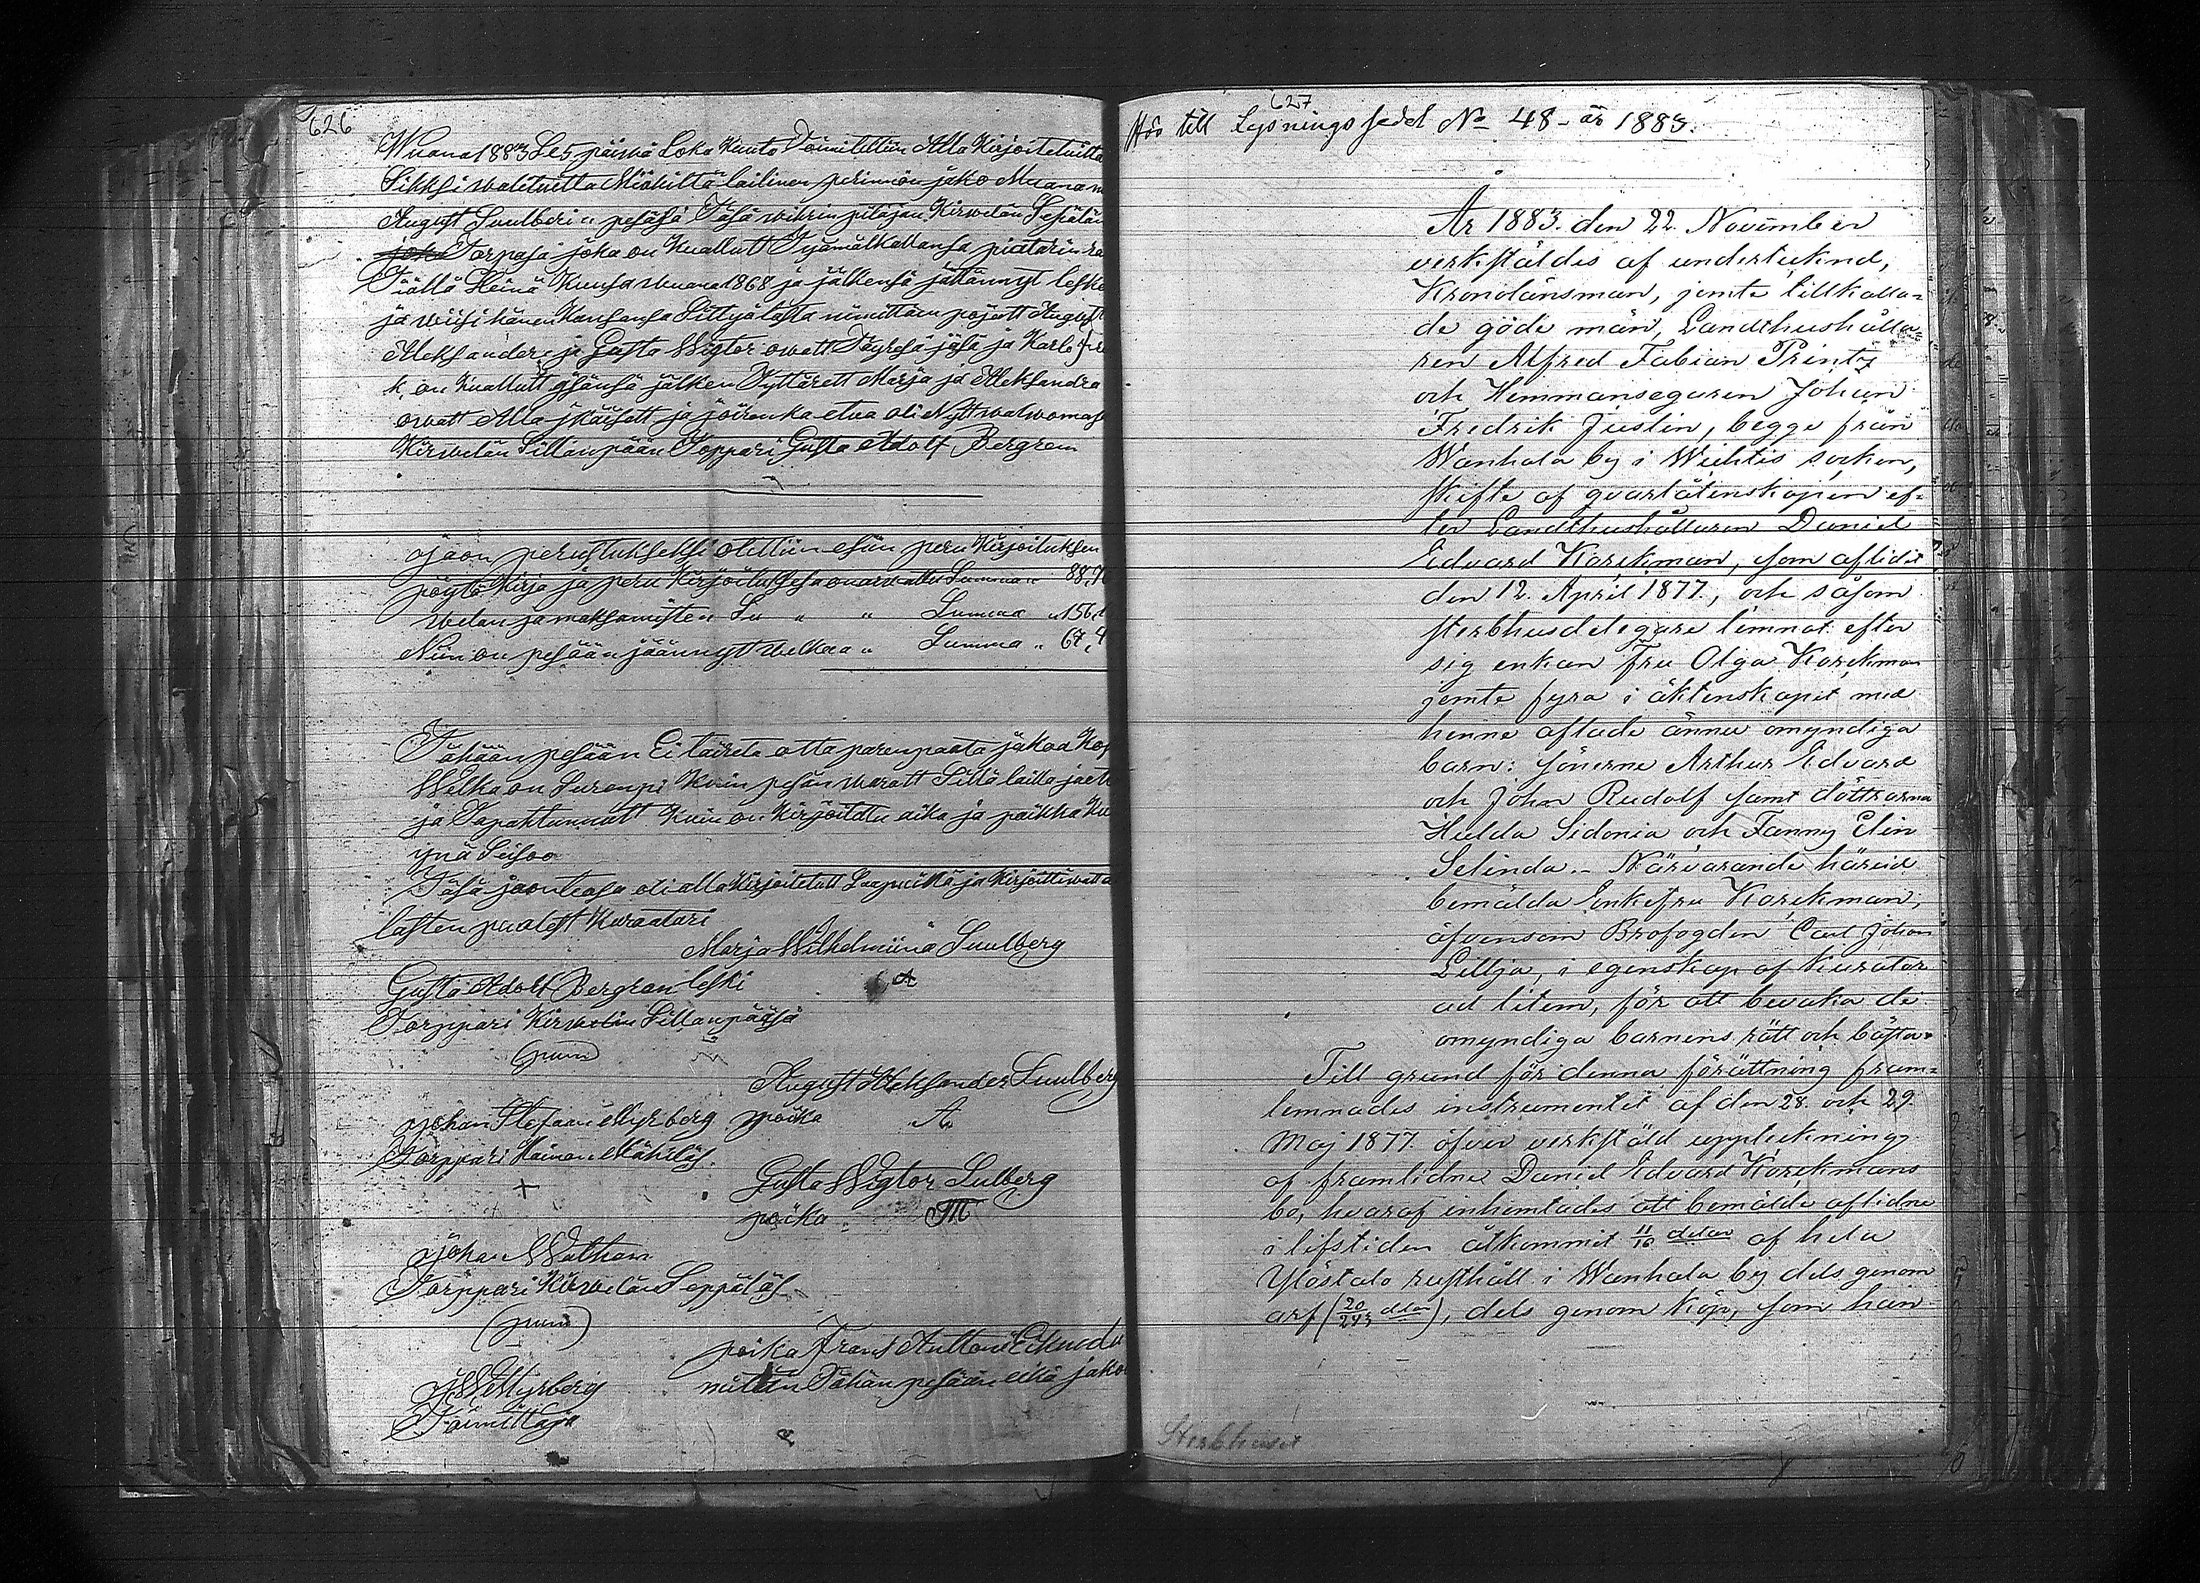 626
Wuana 1883 Se 5 päivä Loka Kuuta Toimitettiin Alla Kirjoitetuilta
Sikksi walituilta Miähiltä lailinen perinnön jako Muana
August Suulberin pesäsä Täsä wihin pitäjän Kirwelän Sepälän
Torpasa joka on Kuallutt Työmätkallansa piatarin
Täällä Heinä Kuusa wuana 1868 ja jälkensä jättännyt lesken
ja wiisi hänen Kansansa Sittyä lasta nimittäin pojatt August
Aleksanderi ja Gusta Wigtor owatt Täyesä jäsä ja Karle
k. on Kuallutt ysänsä jälken Tyttärett Marja ja Aleksandra
owatt Alla jkäisett ja joirenka etua oli Nytt walwomasa
Kirwelän Sillanpään Torppari Gusta Adolf Bergram
ojaon perustukseksi otettiin esiin peru Kirjoituksen
pöytä Kirja ja peru Kirjoituksesa on arwattu Summan 88,
welan ja maksamisten Su " " Summa " 156,
Niin on pesään jäännytt welkaa " Summa " 67,
Tähään pesään Ei taireta otta parempaata jakoa
Welka on Surempi Kuin pesän waratt Sillä laila
ja Tapahtunutt Kuin on Kirjoitettu aika ja paikka
ynä Seisoo
Täsä jaonteosa oli alla Kirjoitetutt Saapuilla ja Kirjoittiwatt
lasten puolest Kuraatari
Marja Wilhelmiina Suulberg
Gusta Adolf Bergram leski
Torppari Kirwelän Sillanpääsä
(pum)
August Aleksander Suulberg
Johan Stefaan Myrberg poika A
Torppari
+
Gusta Wigtor Sulberg
poika M
Johan Waltham
Torppari Kirwelän Seppäläs
(pum)
poika Frans Anttoni
J W Myrberg mittän Tähän pesään eikä
Toimittaja
627
Hör till Lysningssedel No 48 - år 1883.
År 1883. den 22. November
verkställdes af undertecknd,
Kronolänsman, jemte tillkalla=
de gode män, Landthushålla=
ren Alfred Fabian Printz
och Hemmansegaren Johan
Fredrik Justin, begge från
Wanhala by i Wichtis socken,
skifte af qvarlåtenskapen ef=
ter Landthushållaren Daniel
Edvard Korsckman, som aflidit
den 12. April 1877, och såsom
sterbhusdelegare lemnat efter
sig enkan Fru Olga Korsckman
jemte fyra i äktenskapet med
henne aflade ännu omyndiga
barn: sönerne Arthur Edvard
och John Rudolf samt döttrarna
Hulda Sidonia och Fanny Elin
Selinda.- Närvarande häreid
bemälda Enkefru Korsckman,
äfvensom Brofogden Carl Johan
Lillja, i egenskap af kurator
ad litem, för att bevaka de
omyndiga barnens rätt och bästa.
Till grund för denna förättning fram=
lemnades instrumentet af den 28. och 29.
Maj 1877. öfver verkstäld uppteckning
af framlidne Daniel Edvard Korsckmans
bo, hvaraf inhemtades att bemälde aflidne
i lifstiden åtkommit 11/16 delar af hela
Ylöstalo rusthåll i Wanhala by dels genom
arf (20/243 delar), dels genom köp, som han
Sterbhuset